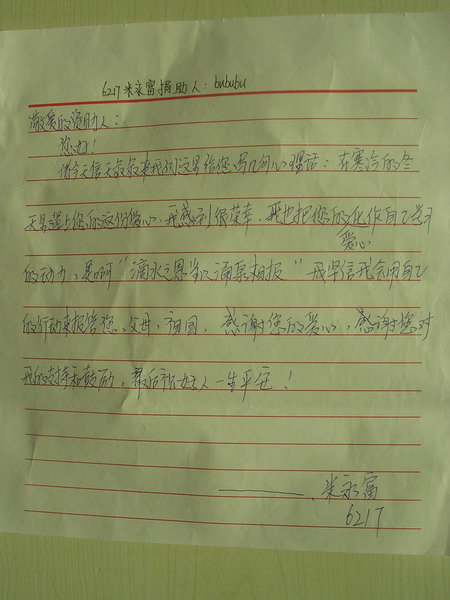 6217 米永富捐助人：bububu
敬爱的资助人：
您好！
借今天信天叔叔来我们这里给您写几句心理话：在寒冷的冬
天里遇上您的这份爱心，我感到很荣幸，我也把您的化作自己学习
爱心
的动力，是啊“滴水之恩当以涌泉相报”我坚信我会用自己
的行动来报答您、父母、祖国，感谢您的爱心，感谢您对
我的支持和鼓励，最后祝好人一生平安！
米永富
6217